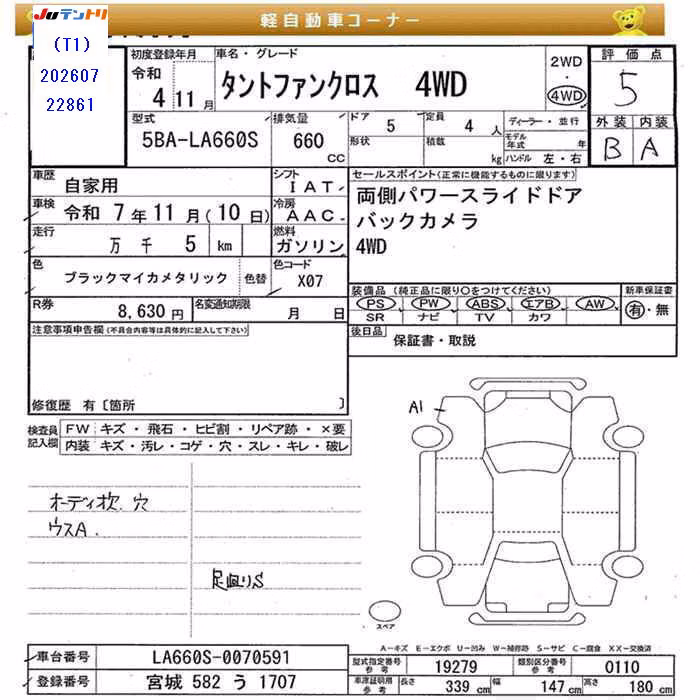 JUテントリ
軽自動車コーナー
(T1)
202607
22861
初度登録年月
令和
4 11月
車名・グレード
タントファンクロス 4WD
2WD
・
4WD
評価点
5
外装 内装
B A
型式
5BA-LA660S
排気量
660
CC
ドア
5
定員
4 人
形状
積載
kg
ディーラー・並行
モデル年式 年
ハンドル 左・右
車歴
自家用
シフト
IAT
車検
令和 7年11月(10日)
冷房
AAC
走行
万 千 5 km
燃料
ガソリン
色
ブラックマイカメタリック
色替
色コード
X07
R券
8,630 円
名変通知期限
月 日
セールスポイント(正常に機能するものに限ります)
両側パワースライドドア
バックカメラ
4WD
装備品(純正品に限り○をつけてください)
PS PW ABS エアB AW
SR ナビ TV カワ
新車保証書
有・無
後日品
保証書・取説
注意事項申告欄(不具合内容等は具体的に記入して下さい)
修復歴 有〔箇所 〕
検査員
記入欄
FW キズ・飛石・ヒビ割・リペア跡・×要
内装 キズ・汚レ・コゲ・穴・スレ・キレ・破レ
オーディオ枕 穴
ウスA.
足廻りS
A1
スペア
A-キズ E-エクボ U-凹み W-補修跡 S-サビ C-腐食 XX-交換済
車台番号
LA660S-0070591
登録番号
宮城 582 う 1707
型式指定番号
参考
19279
類別区分番号
参考
0110
車庫証明用
参考
長さ 339 cm
幅 147 cm
高さ 180 cm